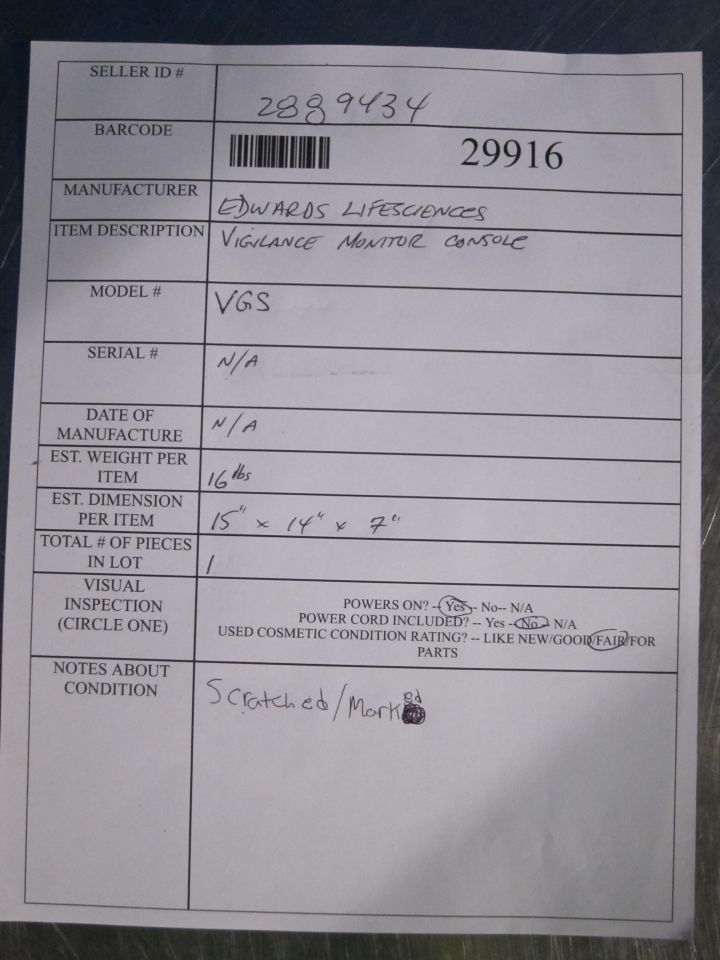 SELLER ID # 2889434
BARCODE 29916
MANUFACTURER EDWARDS LIFESCIENCES
ITEM DESCRIPTION VIGILANCE MONITOR CONSOLE
MODEL # VGS
SERIAL # N/A
DATE OF
MANUFACTURE N/A
EST. WEIGHT PER
ITEM 16 lbs
EST. DIMENSION
PER ITEM 15" x 14" x 7"
TOTAL # OF PIECES
IN LOT 1
VISUAL
INSPECTION
(CIRCLE ONE)
POWERS ON? -- Yes -- No-- N/A
POWER CORD INCLUDED? -- Yes -- No -- N/A
USED COSMETIC CONDITION RATING? -- LIKE NEW/GOOD/FAIR/FOR
PARTS
NOTES ABOUT
CONDITION
Scratched/Marked